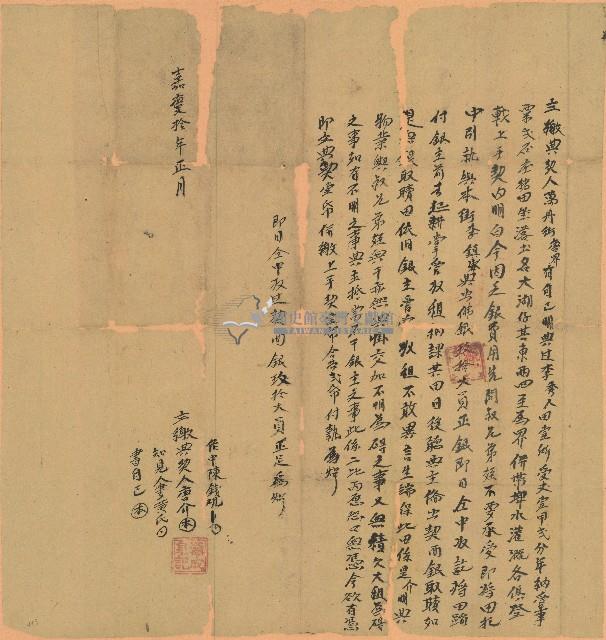 立繳典契人萬丹街詹介有自己明典過李秀人田壹所受丈壹甲弍分年納詹事
粟弍石庄稻田坐落土名大湖仔其東西四至為界併帶埤水灌溉各俱登
載上手契內明白今因乏銀費用先問叔兄弟姪不要承受即將田托
中引就與本街李鎮典出佛銀玖拾大員正銀即日仝中收訖將田踏
付銀主前去起耕掌管收租納課其田日後聽典主備出契面銀取贖如
是無銀取贖田依旧銀主管收租不敢異言生端保此田係是介明典
物業與叔兄弟姪無干亦無掛交加不明為碍之事又無積欠大租為碍
之事如有不明之事典主抵當不干銀主之事此係二比兩愿恐口無憑今欲有憑
即立典契壹帋併繳上手契帋合共弍帋付執為炤
即日仝中收過契面銀玖拾大員正足為炤
嘉慶拾年正月
在中陳錢觀
立繳典契人詹介
知見人妻黃氏
書自己
國史館臺灣文獻館
TAIWAN HISTORICA